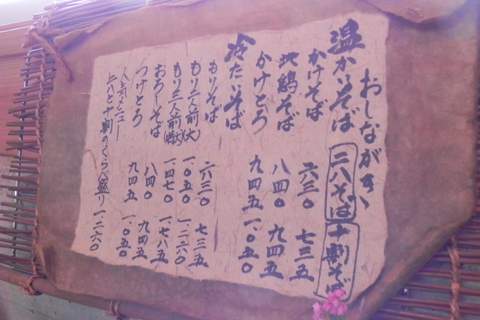 おしながき
温かいそば 二八そば 十割そば
かけそば 六三〇 七三五
地鶏そば 八四〇 九四五
かけとろ 九四五 一、〇五〇
冷たいそば
もりそば 六三〇 七三五
もり二人前(大) 一、〇五〇 一、二六〇
もり三人前 一、四七〇 一、七八五
おろしそば 八四〇 九四五
つけとろ 九四五 一、〇五〇
メニュー
二八と十割のくらべ盛り 一、二六〇